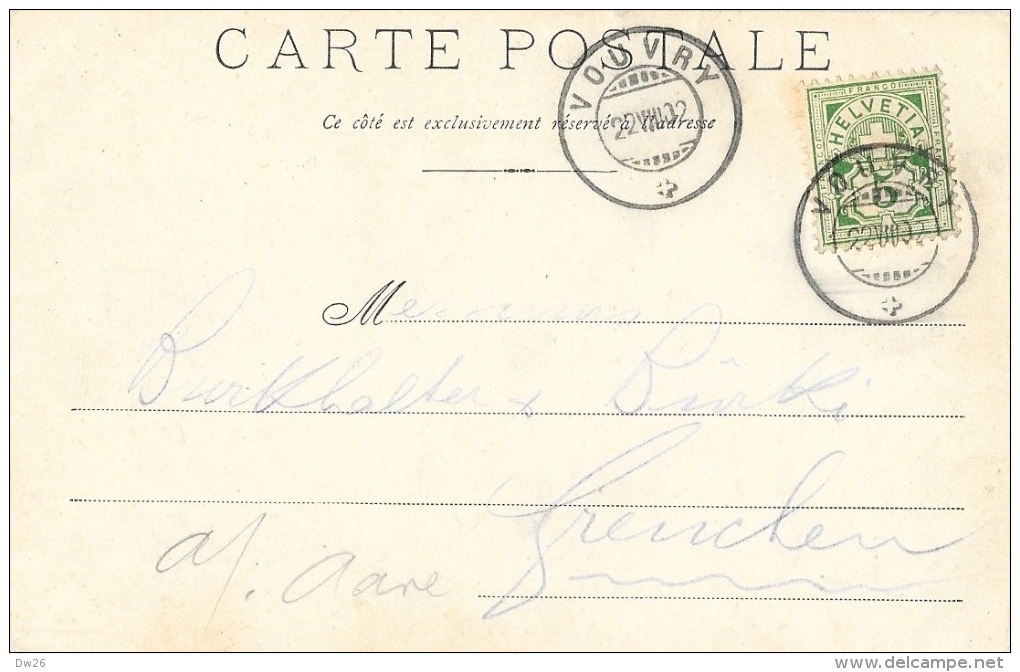 CARTE POSTALE
Ce côté est exclusivement réservé à l'adresse
VOUVRY
22 VIII 02
FRANCO
HELVETIA
5
VOUVRY
22 VIII 02
Messieurs
Burkhalter & Bürki
Grenchen
a/. Aare
Dw26
www.delcampe.net